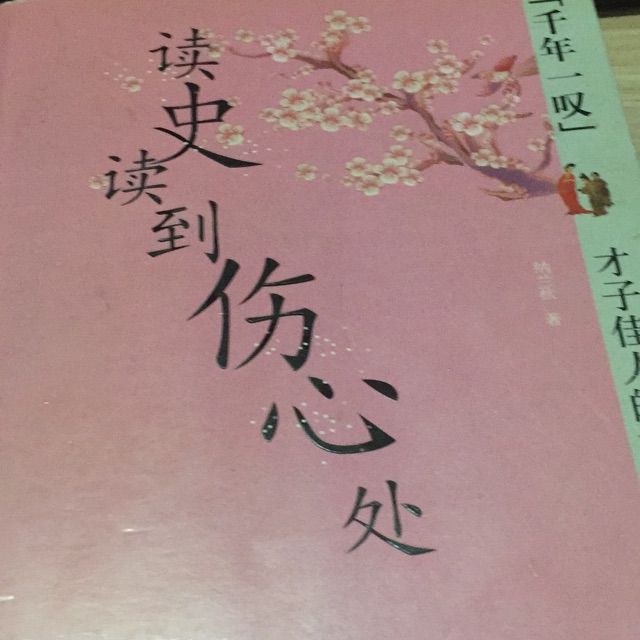 读史读到伤心处
「千年一叹」
才子佳人的
著